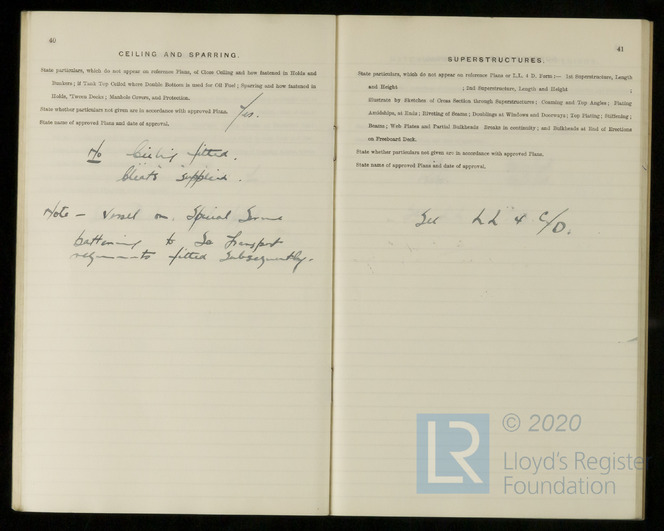 40
CEILING AND SPARRING.
State particulars, which do not appear on reference Plans, of Close Ceiling and how fastened in Holds and
Bunkers; if Tank Top Ceiled where Double Bottom is used for Oil Fuel; Sparring and how fastened in
Holds, 'Tween Decks; Manhole Covers, and Protection.
State whether particulars not given are in accordance with approved Plans. Yes.
State name of approved Plans and date of approval.
No Ceiling fitted.
Cleats supplied.
Note - Vessel on Special Service
battening to Sea Transport
requirements fitted subsequently.
41
SUPERSTRUCTURES.
State particulars, which do not appear on reference Plans or L.L. 4 D. Form:— 1st Superstructure, Length
and Height ; 2nd Superstructure, Length and Height ;
Illustrate by Sketches of Cross Section through Superstructures; Coaming and Top Angles; Plating
Amidships, at Ends; Riveting of Seams; Doublings at Windows and Doorways; Top Plating; Stiffening;
Beams; Web Plates and Partial Bulkheads. Breaks in continuity; and Bulkheads at End of Erections
on Freeboard Deck.
State whether particulars not given are in accordance with approved Plans.
State name of approved Plans and date of approval.
See LL 4 C/D.
LR
© 2020
Lloyd's Register
Foundation